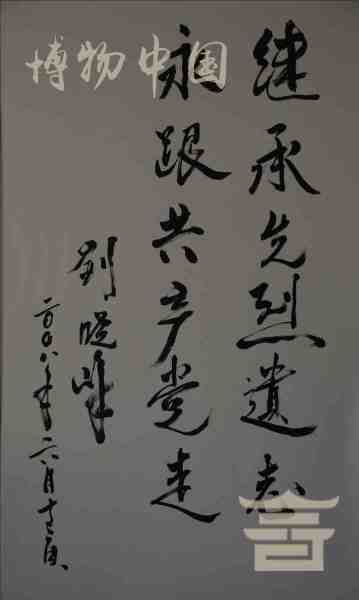 博物中国
继承先烈遗志
永跟共产党走
刘晓峰
二〇〇八年六月十三日